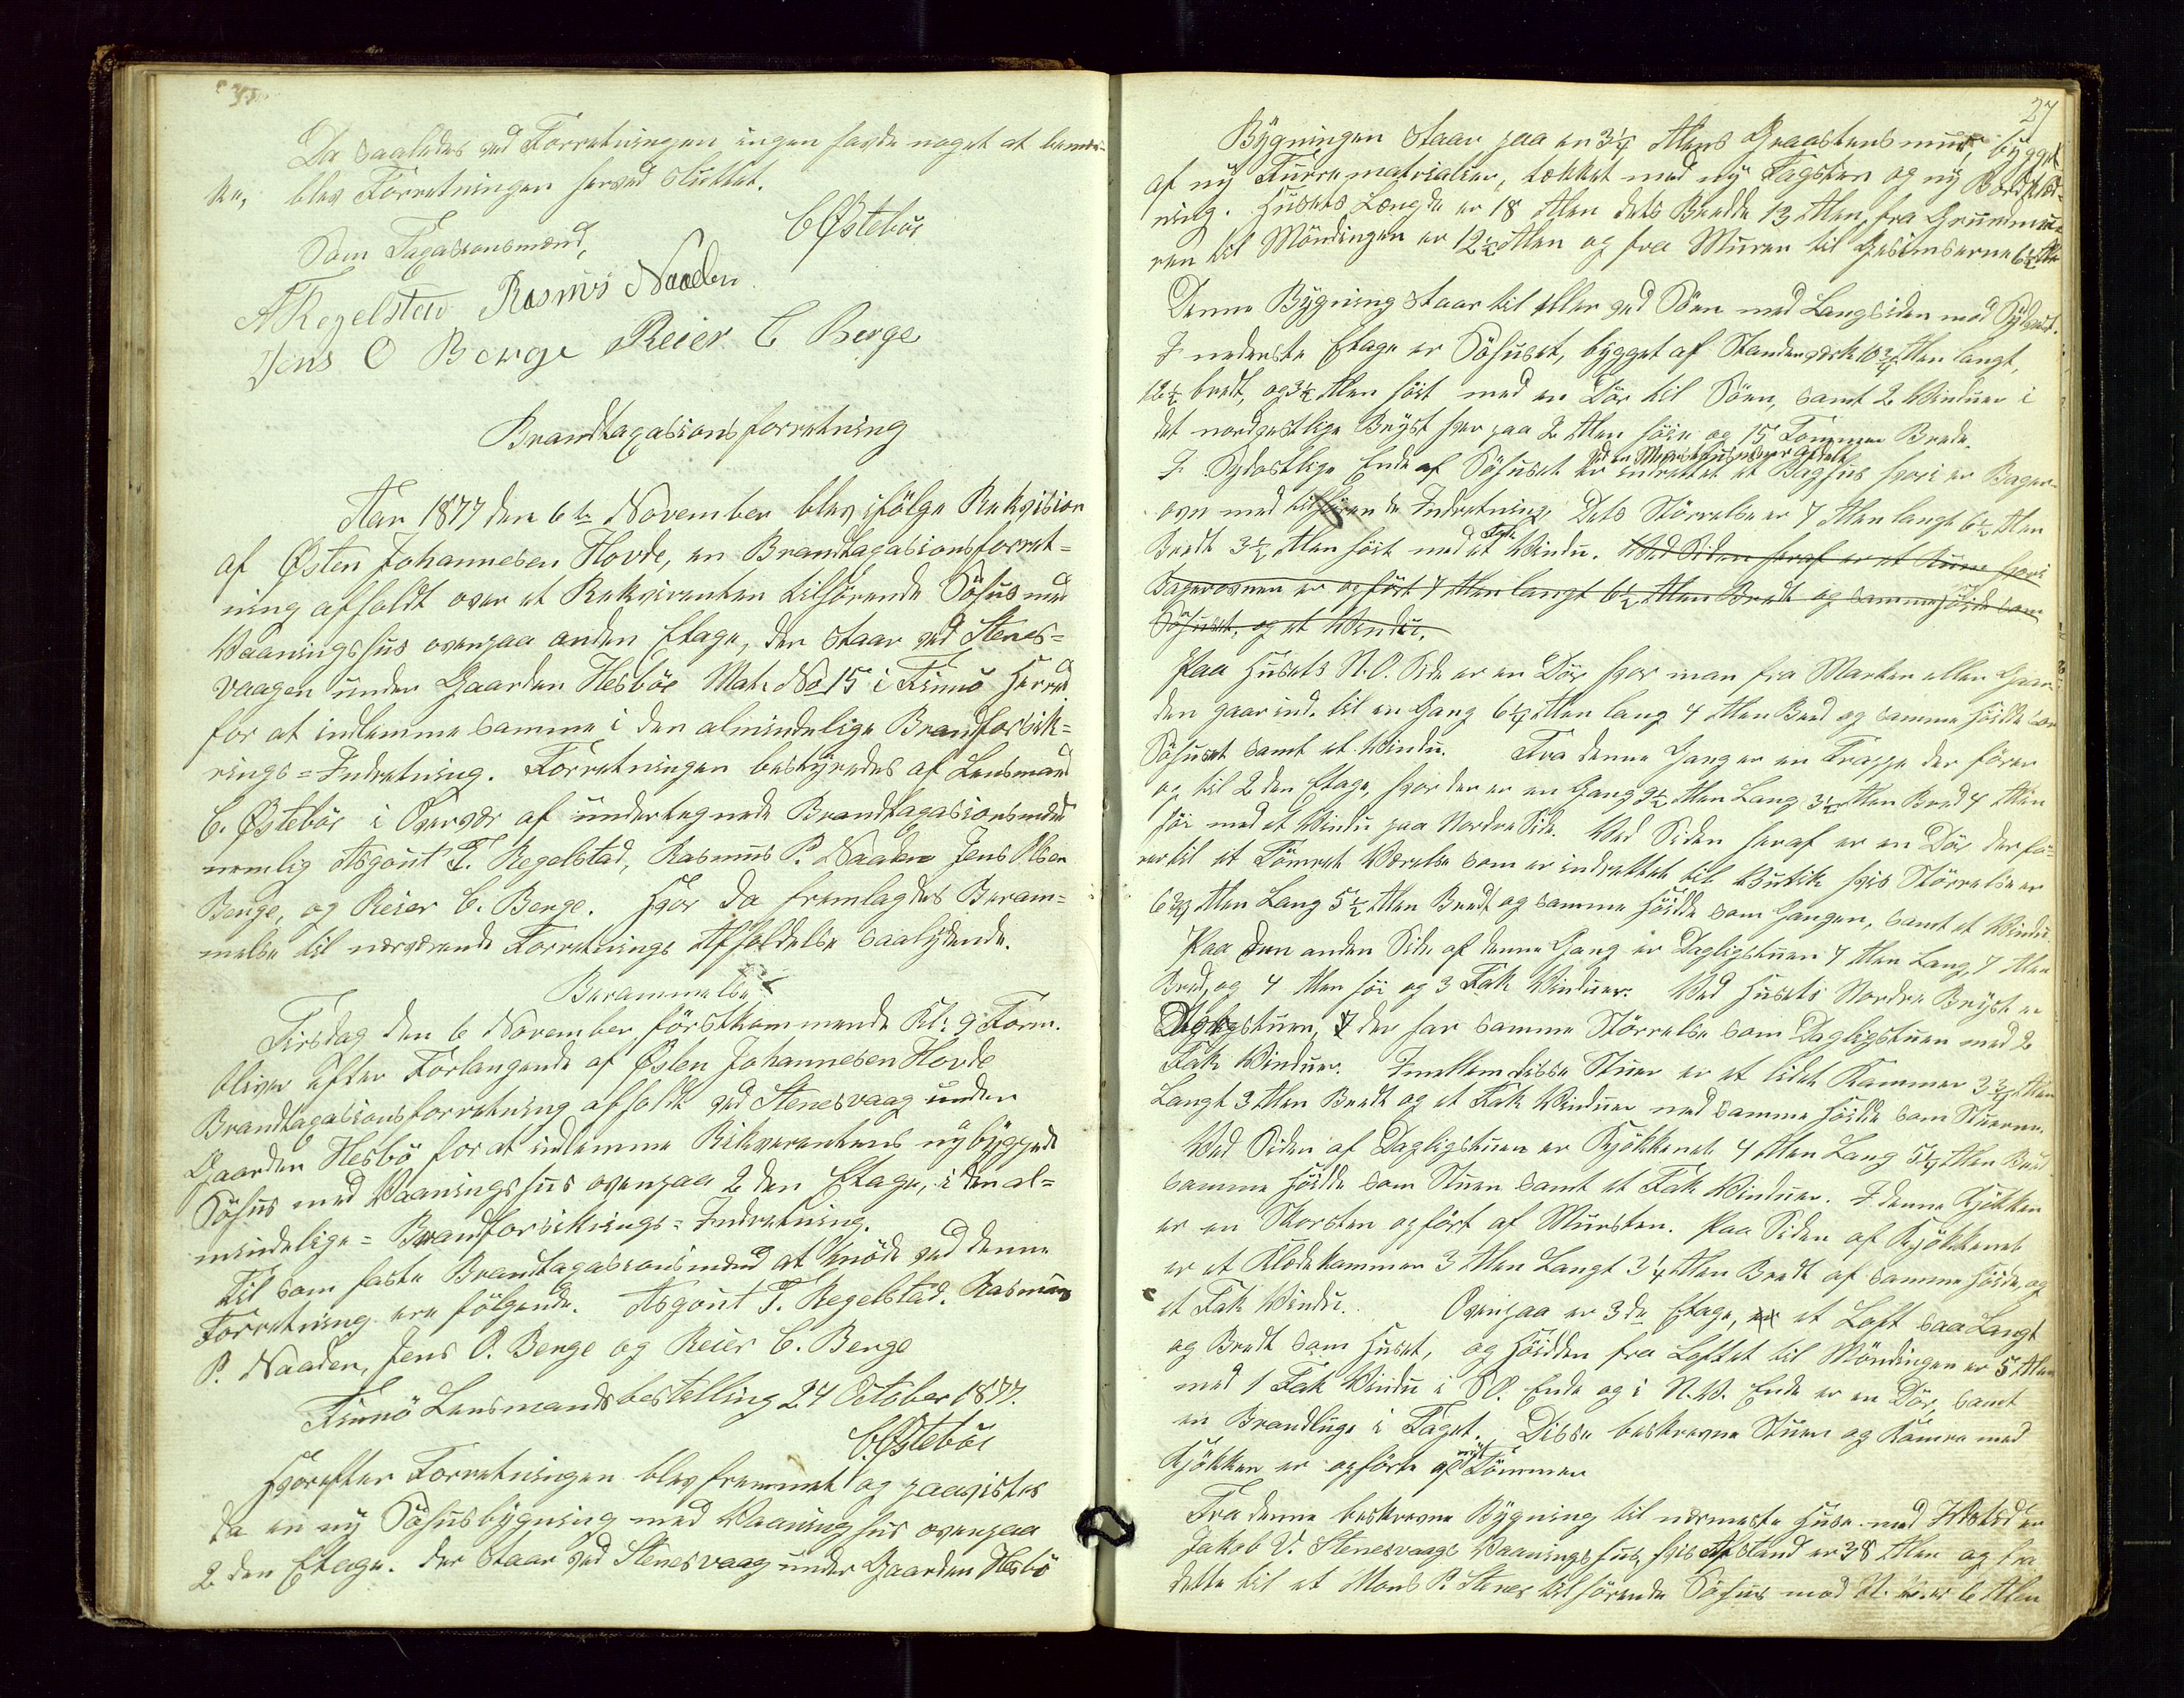 Da saaledes ved Forretningen ingen havde noget at bemær-
ke, blev Forretningen herved sluttet.
C Østebøe
Som Taxasionsmænd,
A Regelstad Rasmus Naaden
Jens O Berge Reier C Berge
Brandtaxasionsforretning
Aar 1877 den 6te November blev ifölge Rekvisision
af Østen Johannesen Hovde, en Brandtaxasionsforret=
ning afholdt over et Rekvirenten tilhörende Söhus med
Vaaningshus ovenpaa anden Etage, der staar ved Stenes=
vaagen under Gaarden Hesböe Mat: No 15 i Finnö Herred
for at indlemme samme i den almindelige Brandforsik=
rings=Indretning. Forretningen bestyredes af Lensmand
C. Østeböe i Overvær af undertegnede Brandtaxasionsmænd
nemlig Asgout T. Regelstad, Rasmus P. Naaden Jens Olsen
Berge, og Reier C. Berge. Hvor da fremlagdes Beram=
melse til nærværende Forretnings Afholdelse saalydende.
Berammelse
Tirsdag den 6 November förstkommende Kl: 9 Form.
bliver efter Forlangende af Østen Johannesen Hovde
Brandtaxasionsforretning afholdt ved Stenesvaag under
Gaarden Hesbö for at indlemme Rekvirentens nybyggede
Söhus med Vaaningshus ovenpaa 2den Etage, i den al=
mindelige=Brandforsikrings=Indretning.
Til som faste Brandtaxasionsmænd at möde ved denne
Forretning ere fölgende. Asgout T. Regelstad. Rasmus
P. Naaden, Jens O. Berge og Reier C. Berge
Finnö Lensmandsbestelling 24 October 1877.
C. Østeböe
Hvorefter Forretningen blev fremmet og paavistes
da en ny Söhusbygning med Vaaningshus ovenpaa
2den Etage. der staar ved Stenesvaag under Gaarden Hesbö
27
Bygningen staar paa en 3¼ Alens Graastensmur, bygget
af ny Furrematrialier, tækket med ny Tagsten og ny Bordklæd-
ning. Husets Længde er 18 Alen dets Bredde 13 Alen, fra Grundmu-
ren til Möndingen er 12½ Alen og fra Muren til Gesimserne 6½ Al
Denne Bygning staar til eller ved Söen med Langsiden mod Sydvest.
I nederste Etage er Söhuset, bygget af Standerværk 10¾ Alen langt,
12½ bredt, og 3½ Alen höit med en Dör til Söen, samt 2 Vinduer i
det nordvestlige Bryst hver paa 2 Alen höie og 15 Tommer Brede.
I Sydostlige Ende af Söhuset er indrettet et Baghus hvori er Bager-
ovn med tilhörende Indretning Dets Störrelse er 7 Alen langt 6½ Alen
Bredt 3½ Alen höit med et Fag Vindu. Ved Siden heraf er et Rum hvori
Bagerovnen er opfört 7 Alen langt 6½ Alen Bredt og samme höide som
Söhuset, og et Vindu.
Paa Husets N.O. Side er en Dör hvor man fra Marken eller Gaar-
den gaar ind. til en Gang 6¼ Alen lang 4 Alen Bred og samme höide som
Söhuset samt et Vindu. Fra denne Gang er en Trappe der förer
op til 2den Etage, hvor der er en Gang 9½ Alen Lang 3½ Alen Bred 4 Alen
höi med et Vindu paa Nordre Side. Ved Siden heraf er en Dör der fö-
rer til et Tömret Værelse som er indrettet til Butik hvis Störrelse er
6¾ Alen Lang 5½ Alen Bredt og samme höidde som Gangen, samt et Vindu
Paa den anden Side af denne Gang er Dagligstuen 7 Alen Lang, 7 Alen
Bred, og 4 Alen höi og 3 Fak Vinduer. Ved Husets Nordre Bryst er
der har samme Störrelse som Dagligstuen med 2
Fak Vinduer. Imellem disse Stuer er et lidet Kammer 3¾ Alen
Langt 3 Alen Bredt og et Fak Vinduer med samme höide som Stuerne.
Ved Siden af Dagligstuen er Kjökkenet 7 Alen Lang 5¼ Alen Bred
samme höidde som Stuen samt et Fak Vinduer. I denne Kjökken
er en Skorsten opfört af Mursten. Paa Siden af Kjökkenet
er et Klædekammer 3 Alen Langt 3¼ Alen Bredt af samme höide, og
et Fak Vindu. Ovenpaa er 3de Etage, er et Loft saa Langt
og Bredt som Huset, og höidden fra Loftet til Möndingen er 5 Alen
med 1 Fak Vindu i S.O. Ende og i N.V. Ende er en Dör, samt
en Brandluge i Taget. Disse beskrevne Stuer og Kamre med
Kjökken er opförte af Tömmer
Fra denne beskrevne Bygning til nærmeste Huse med Ildsted er
Jakob V. Stenesvaags Vaaningshus, hvis Afstand er 38 Alen og fra
dette til et Mons P. Stenes tilhörende Söhus mod N. er 6 Alen